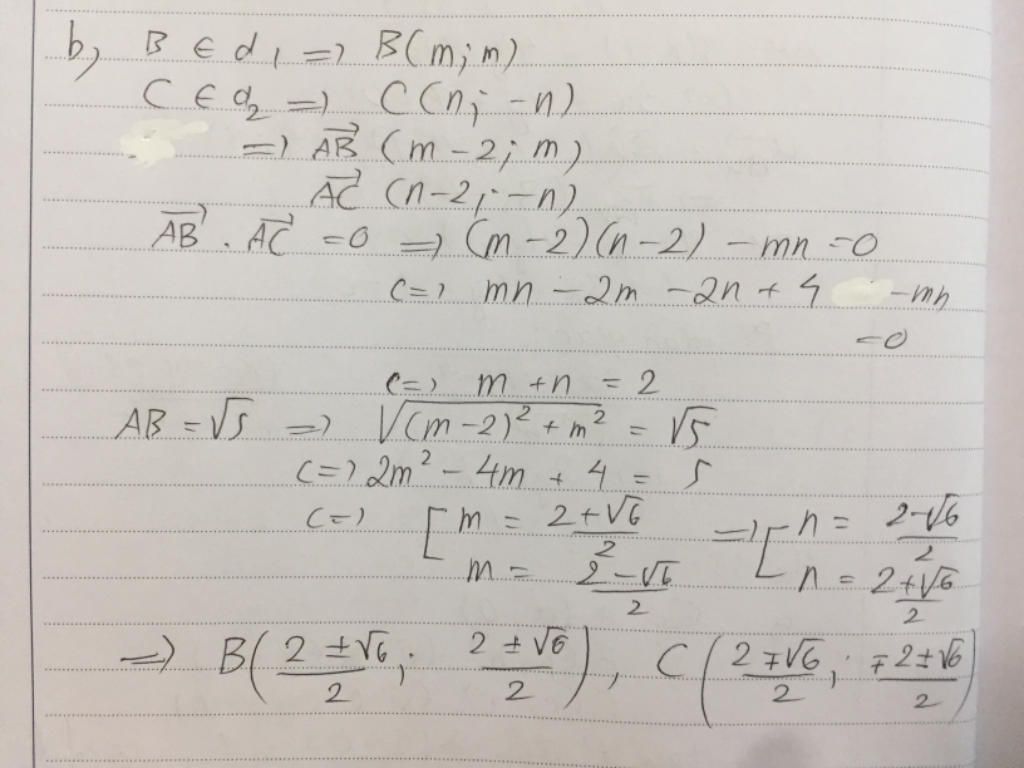 b, B ∈ d₁ => B(m; m)
C ∈ d₂ => C(n; -n)
=> \overrightarrow{AB} (m - 2; m)
\overrightarrow{AC} (n-2; -n)
\overrightarrow{AB} . \overrightarrow{AC} = 0 => (m - 2)(n - 2) - mn = 0
<=> mn - 2m - 2n + 4 - mn
= 0
<=> m + n = 2
AB = √5 => √((m - 2)² + m²) = √5
<=> 2m² - 4m + 4 = 5
<=> [ m = (2 + √6)/2 => [ n = (2 - √6)/2
m = (2 - √6)/2 n = (2 + √6)/2
=> B( (2 ± √6)/2 ; (2 ± √6)/2 ), C( (2 ∓ √6)/2 ; (∓ 2 ± √6)/2 )